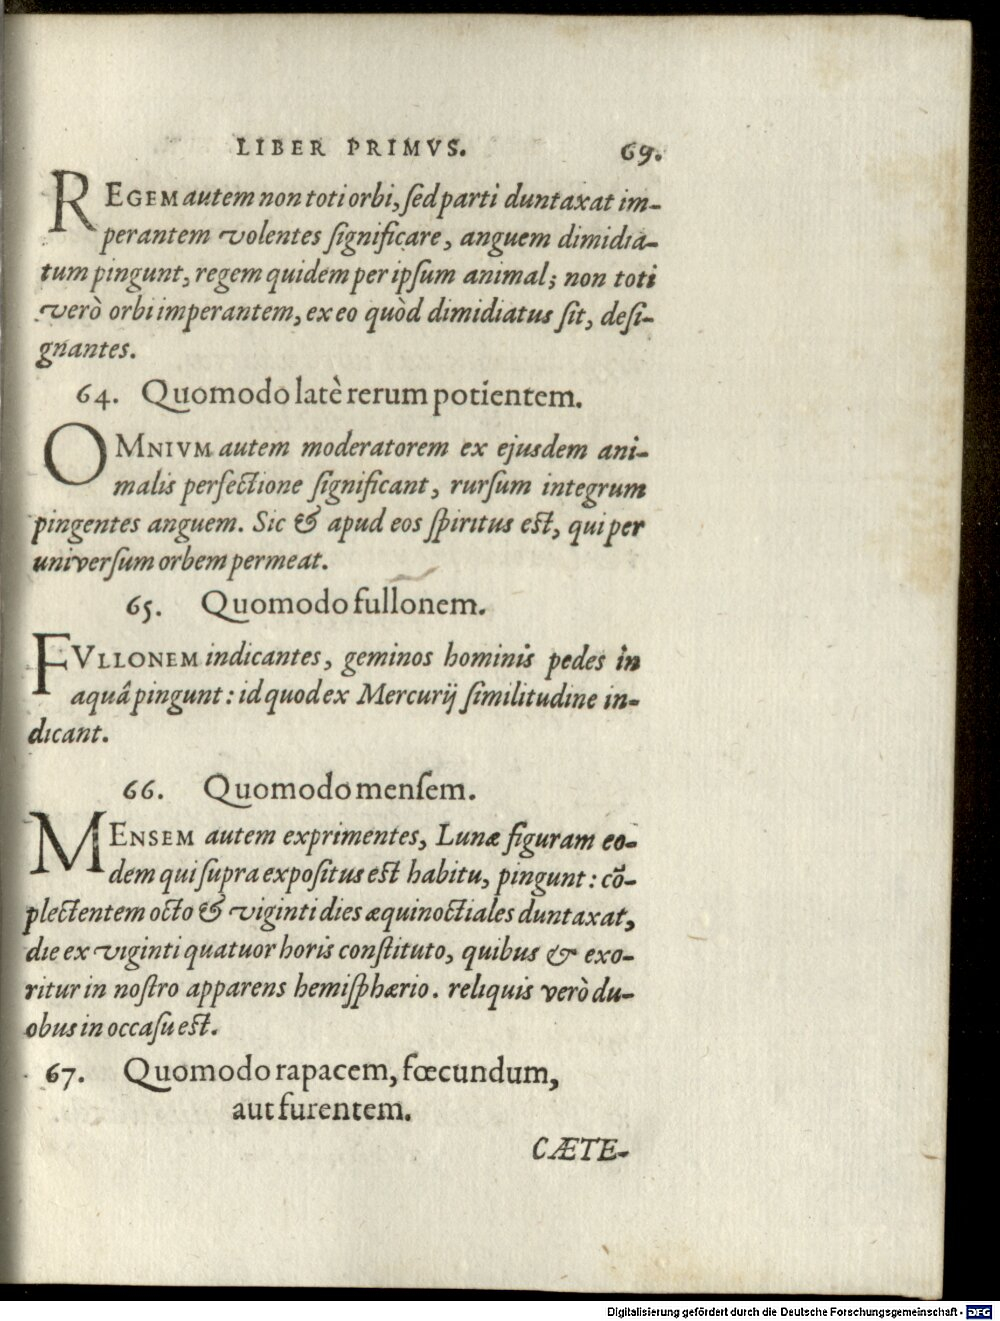 LIBER PRIMVS. 69.
REGEM autem non toti orbi, sed parti duntaxat im-
perantem volentes significare, anguem dimidia-
tum pingunt, regem quidem per ipsum animal; non toti
verò orbi imperantem, ex eo quòd dimidiatus sit, desi-
gnantes.
64. Quomodo latè rerum potientem.
OMNIVM autem moderatorem ex ejusdem ani-
malis perfectione significant, rursum integrum
pingentes anguem. Sic & apud eos spiritus est, qui per
universum orbem permeat.
65. Quomodo fullonem.
FVLLONEM indicantes, geminos hominis pedes in
aquâ pingunt: id quod ex Mercurij similitudine in-
dicant.
66. Quomodo mensem.
MENSEM autem exprimentes, Lunæ figuram eo-
dem qui supra expositus est habitu, pingunt: cõ-
plectentem octo & viginti dies æquinoctiales duntaxat,
die ex viginti quatuor horis constituto, quibus & exo-
ritur in nostro apparens hemisphærio. reliquis verò du-
obus in occasu est.
67. Quomodo rapacem, fœcundum,
aut furentem.
CÆTE-
Digitalisierung gefördert durch die Deutsche Forschungsgemeinschaft - DFG